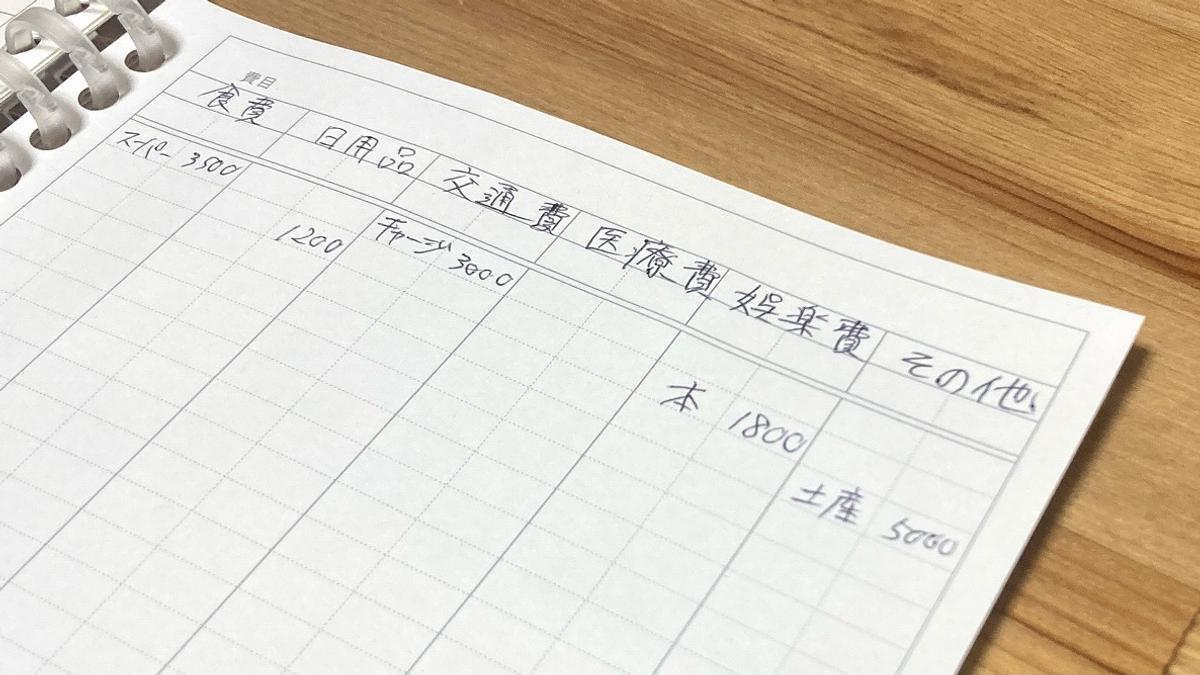 費目
食費 日用品 交通費 医療費 娯楽費 その他
スーパー 3500
1200
チャージ 3000
本 1800
土産 5000